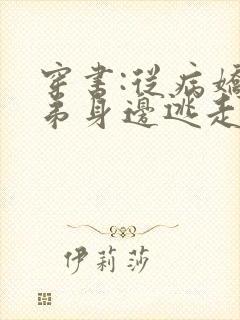 穿書:從病嬌
弟身邊逃走
伊莉莎